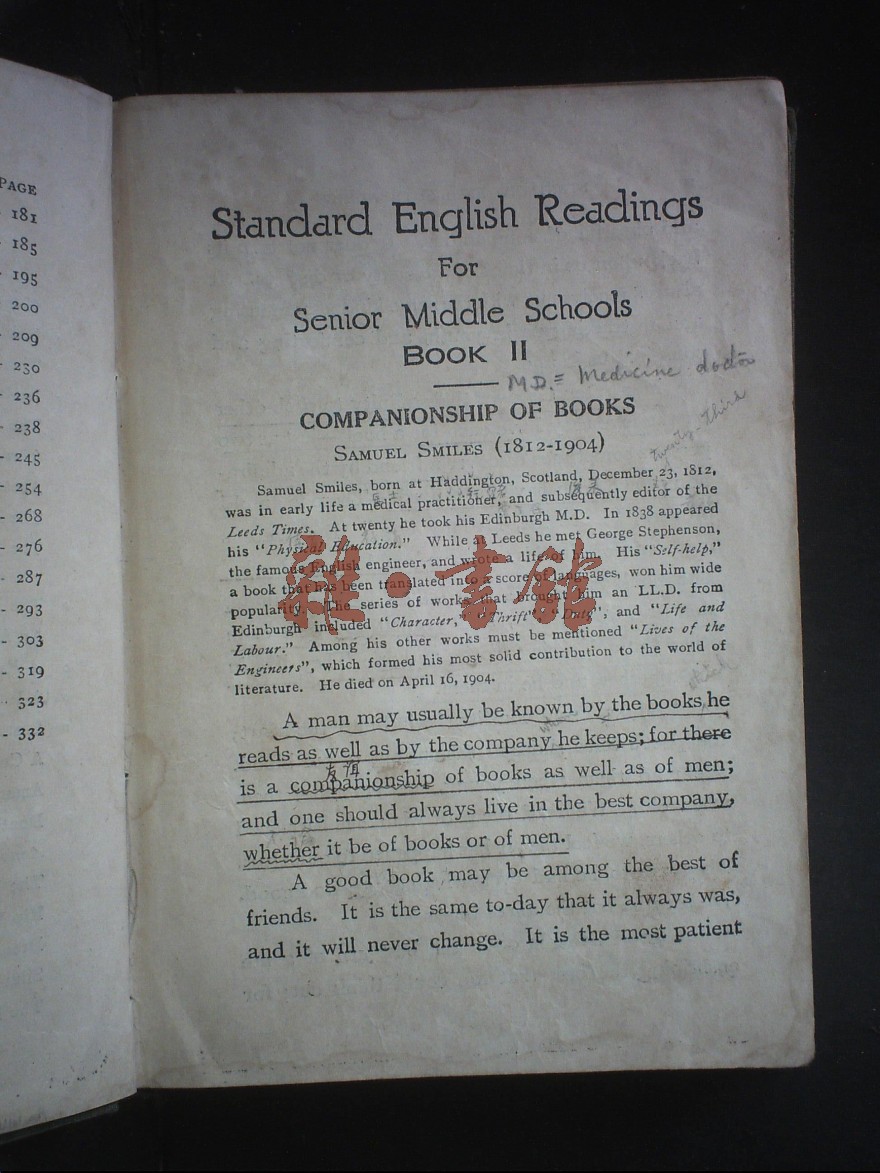 PAGE
181
185
195
200
209
230
236
238
245
254
268
276
287
293
303
319
323
332
Standard English Readings
For
Senior Middle Schools
BOOK II
M.D. = Medicine doctor
COMPANIONSHIP OF BOOKS
SAMUEL SMILES (1812-1904)
twenty-third
Samuel Smiles, born at Haddington, Scotland, December 23, 1812,
was in early life a medical practitioner, and subsequently editor of the
Leeds Times. At twenty he took his Edinburgh M.D. In 1838 appeared
his "Physical Education." While at Leeds he met George Stephenson,
the famous English engineer, and wrote a life of him. His "Self-help,"
a book that has been translated into a score of languages, won him wide
popularity. The series of works that brought him an LL.D. from
Edinburgh included "Character," "Thrift", "Duty", and "Life and
Labour." Among his other works must be mentioned "Lives of the
Engineers", which formed his most solid contribution to the world of
literature. He died on April 16, 1904.
雜·書館
A man may usually be known by the books he
reads as well as by the company he keeps; for there
友誼
is a companionship of books as well as of men;
and one should always live in the best company,
whether it be of books or of men.
A good book may be among the best of
friends. It is the same to-day that it always was,
and it will never change. It is the most patient